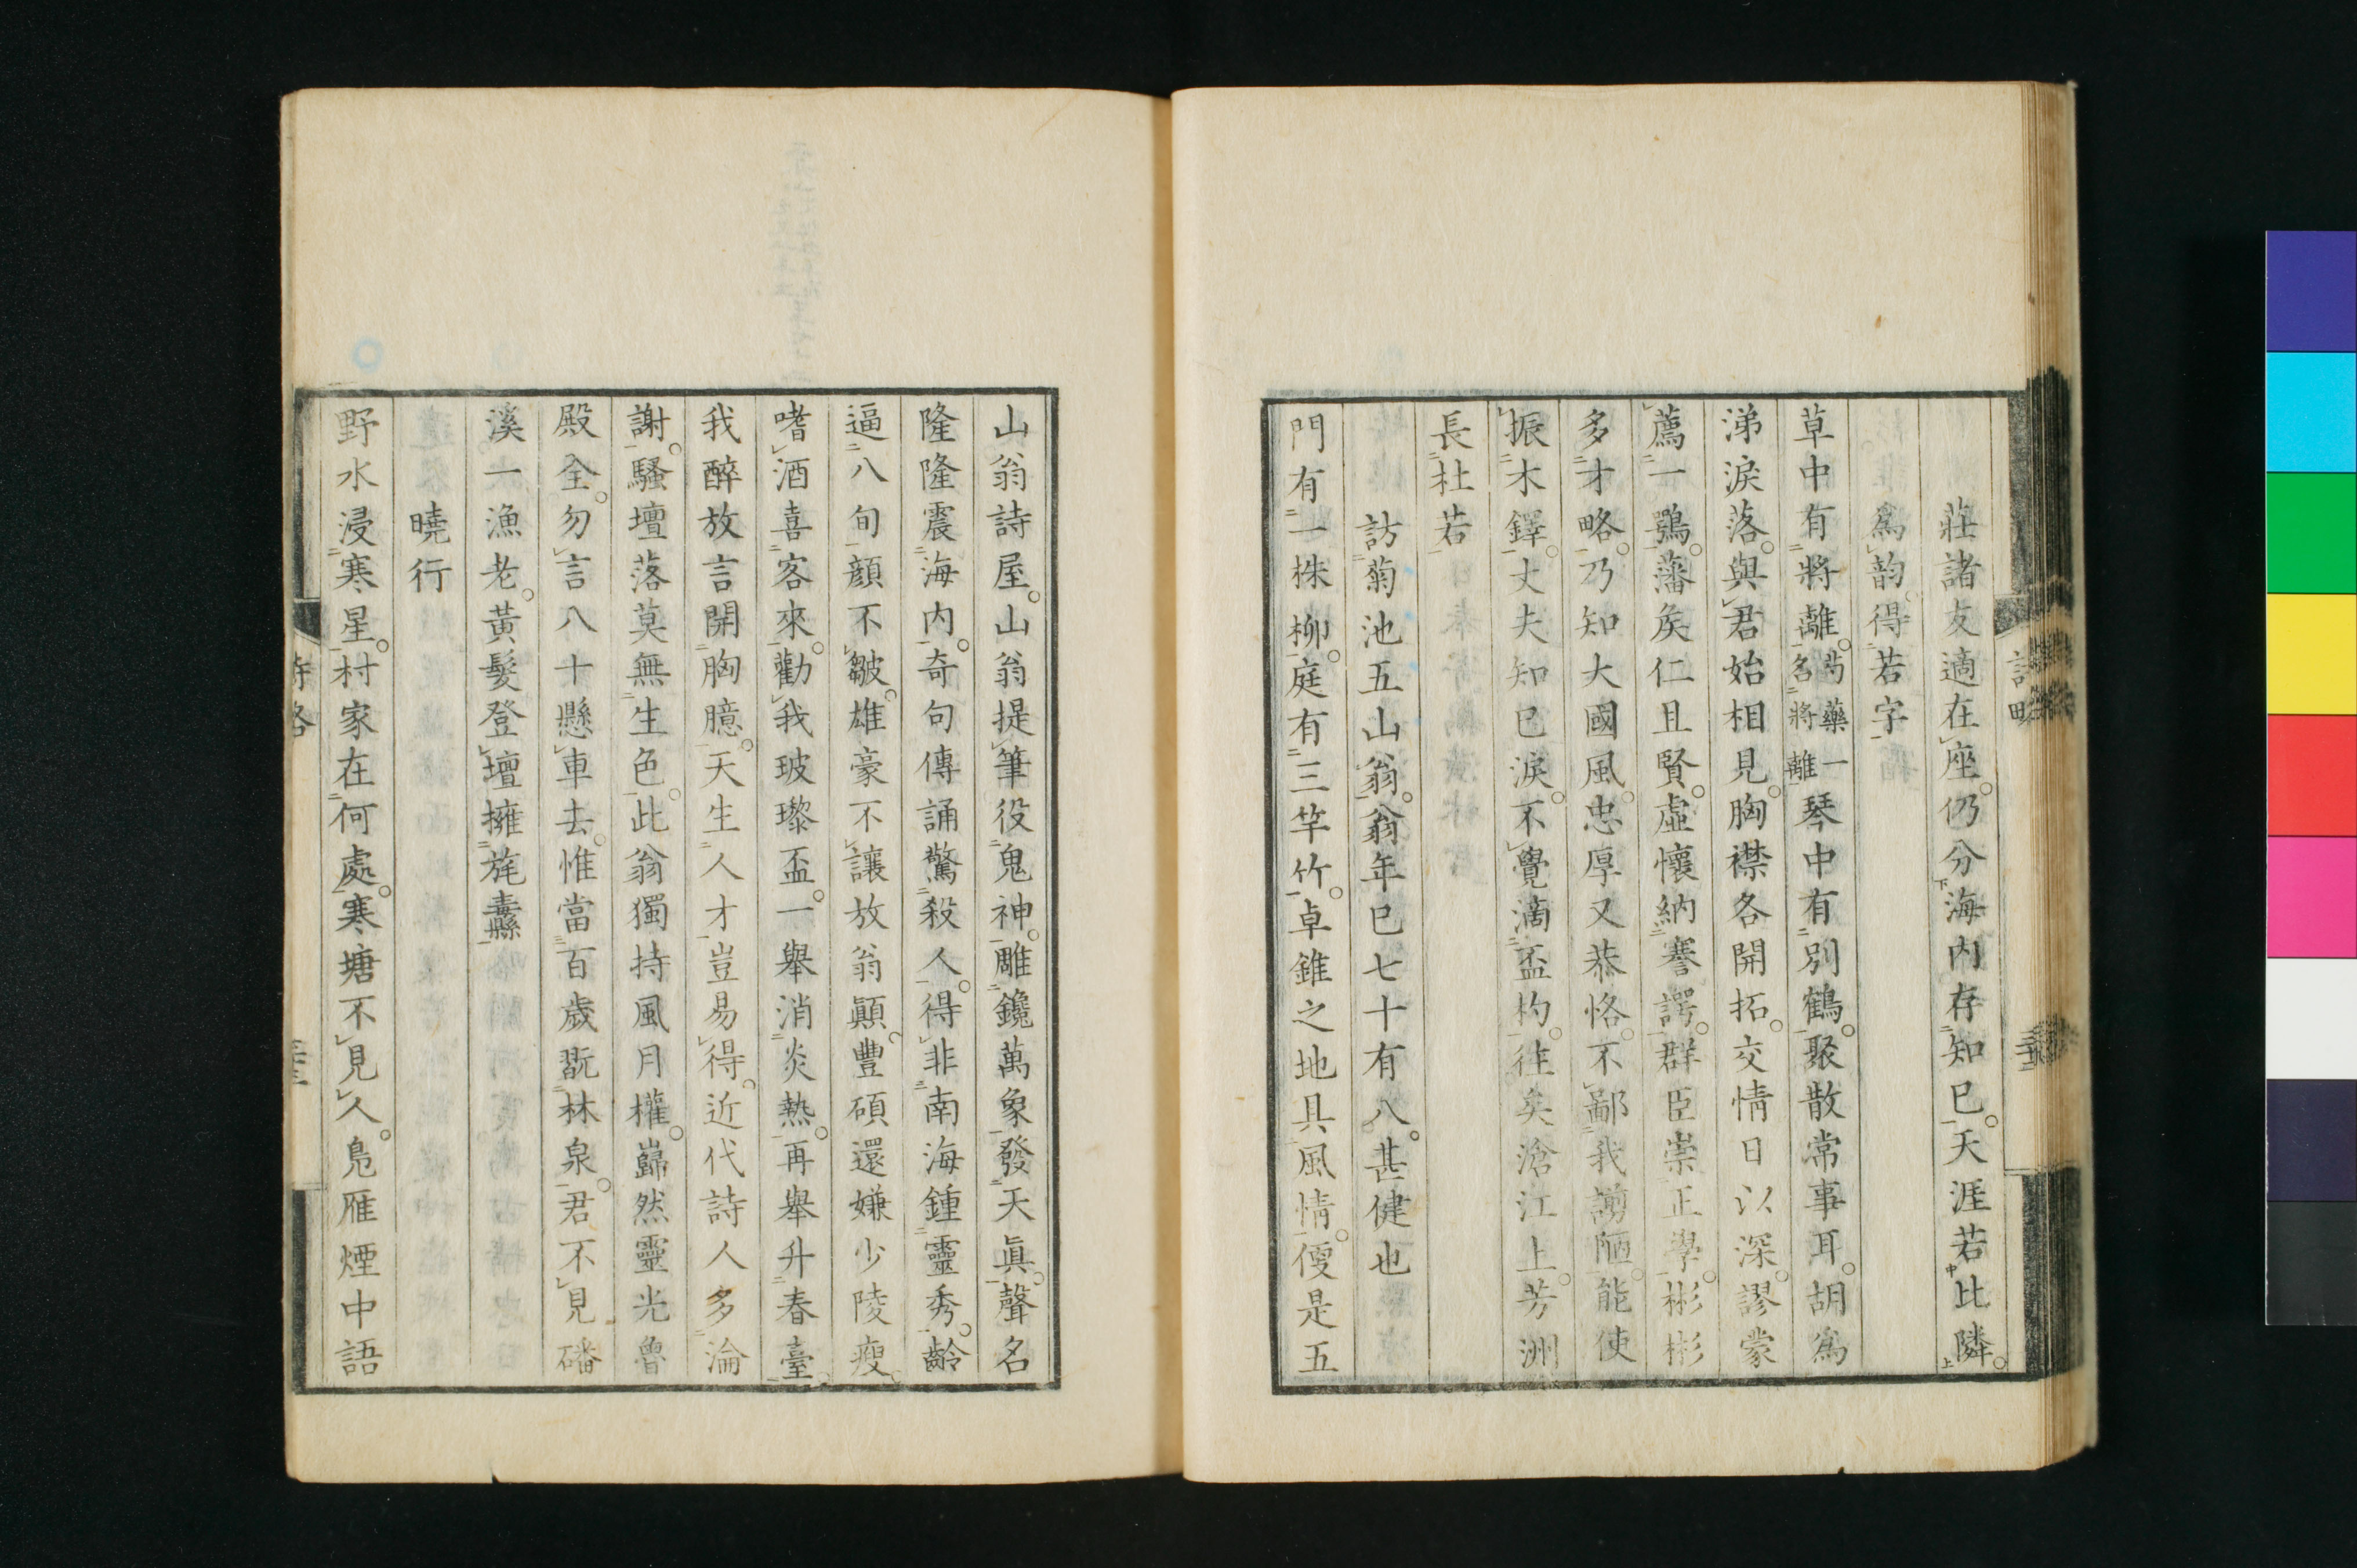 莊諸友適在座。仍分海内存知己。天涯若比隣。
爲韵。得若字
草中有將離。芍藥一名將離琴中有別鶴。聚散常事耳。胡爲
涕淚落。與君始相見。胸襟各開拓。交情日以深。謬蒙
薦一鶚。藩矦仁且賢。虛懷納謇諤。群臣崇正學。彬彬
多才略。乃知大國風。忠厚又恭恪。不鄙我謭陋。能使
振木鐸。丈夫知己淚。不覺滴盃杓。徃矣滄江上。芳洲
長杜若
訪菊池五山翁。翁年已七十有八。甚健也
門有一株柳。庭有三竿竹。卓錐之地具風情。便是五
山翁詩屋。山翁提筆役鬼神。雕鑱萬象發天眞。聲名
隆隆震海内。奇句傳誦驚殺人。得非南海鍾靈秀。齡
逼八旬顔不皺。雄豪不讓放翁顚。豐碩還嫌少陵瘦。
嗜酒喜客來。勸我玻瓈盃。一舉消炎熱。再舉升春臺。
我醉放言開胸臆。天生人才豈易得。近代詩人多淪
謝。騷壇落莫無生色。此翁獨持風月權。巋然靈光魯
殿全。勿言八十懸車去。惟當百歲翫林泉。君不見磻
溪一漁老。黃髮登壇擁旄纛
曉行
野水浸寒星。村家在何處。寒塘不見人。鳬雁煙中語